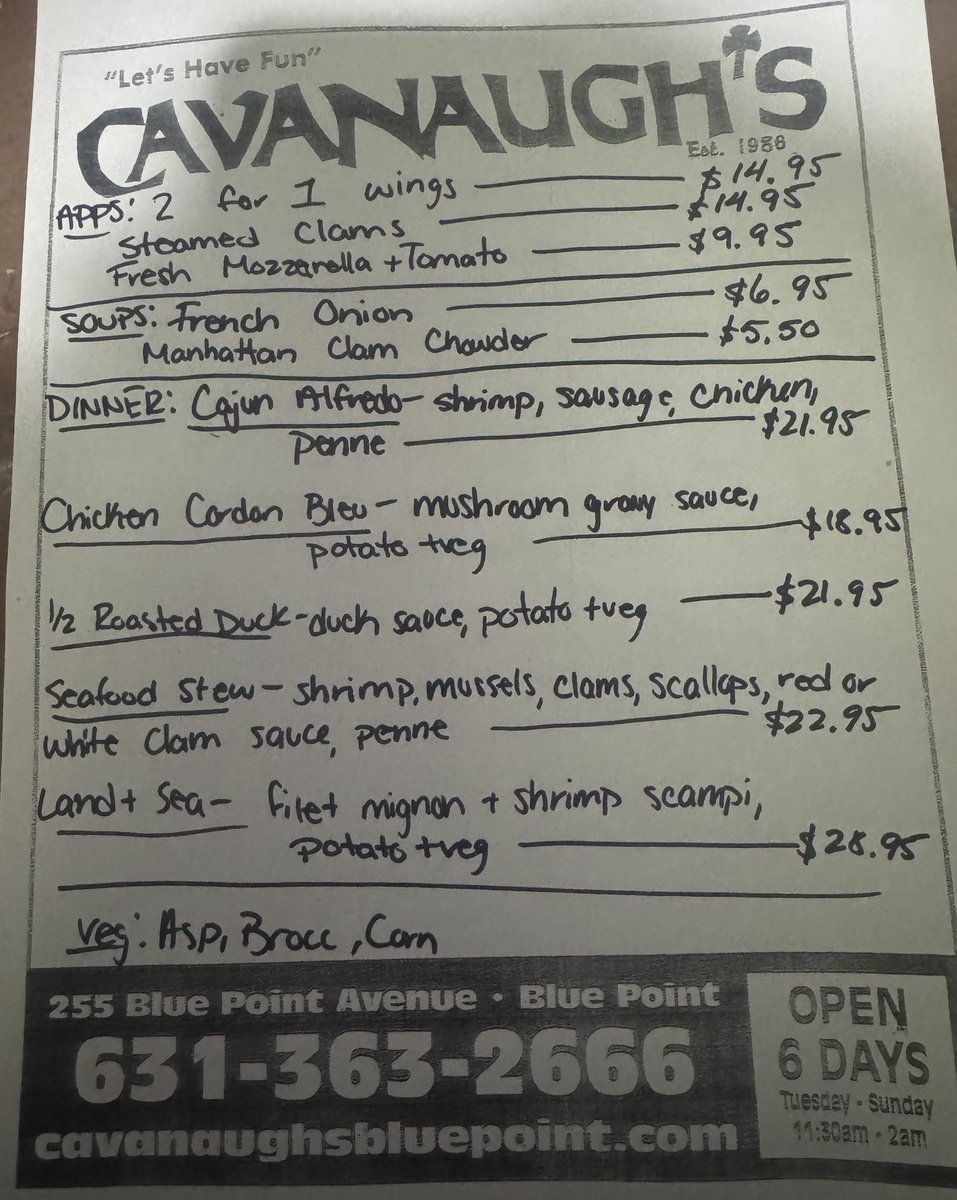 "Let's Have Fun"
CAVANAUGH'S
Est. 1986
APPS: 2 for 1 wings $14.95
Steamed Clams $14.95
Fresh Mozzarella + Tomato $9.95
SOUPS: French Onion $6.95
Manhattan Clam Chowder $5.50
DINNER: Cajun Alfredo - shrimp, sausage, chicken,
penne $21.95
Chicken Cordon Bleu - mushroom gravy sauce,
potato + veg $18.95
1/2 Roasted Duck - duck sauce, potato + veg $21.95
Seafood Stew - shrimp, mussels, clams, scallops, red or
white clam sauce, penne $22.95
Land + Sea - filet mignon + shrimp scampi,
potato + veg $28.95
Veg: Asp, Brocc, Corn
255 Blue Point Avenue · Blue Point
631-363-2666
cavanaughsbluepoint.com
OPEN
6 DAYS
Tuesday - Sunday
11:30am - 2am